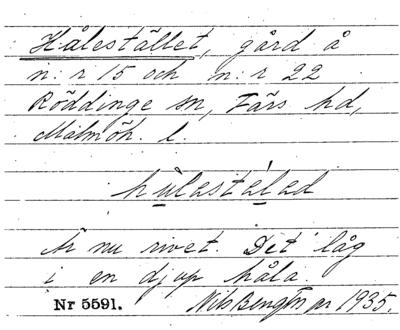 Hålestället, gård å
n:r 15 och n:r 22
Röddinge sn, Färs hd,
Malmöh. l.
hùlestélad
Är nu rivet. Det låg
i en djup håla.
Nr 5591. Nils Bengtsson 1935.